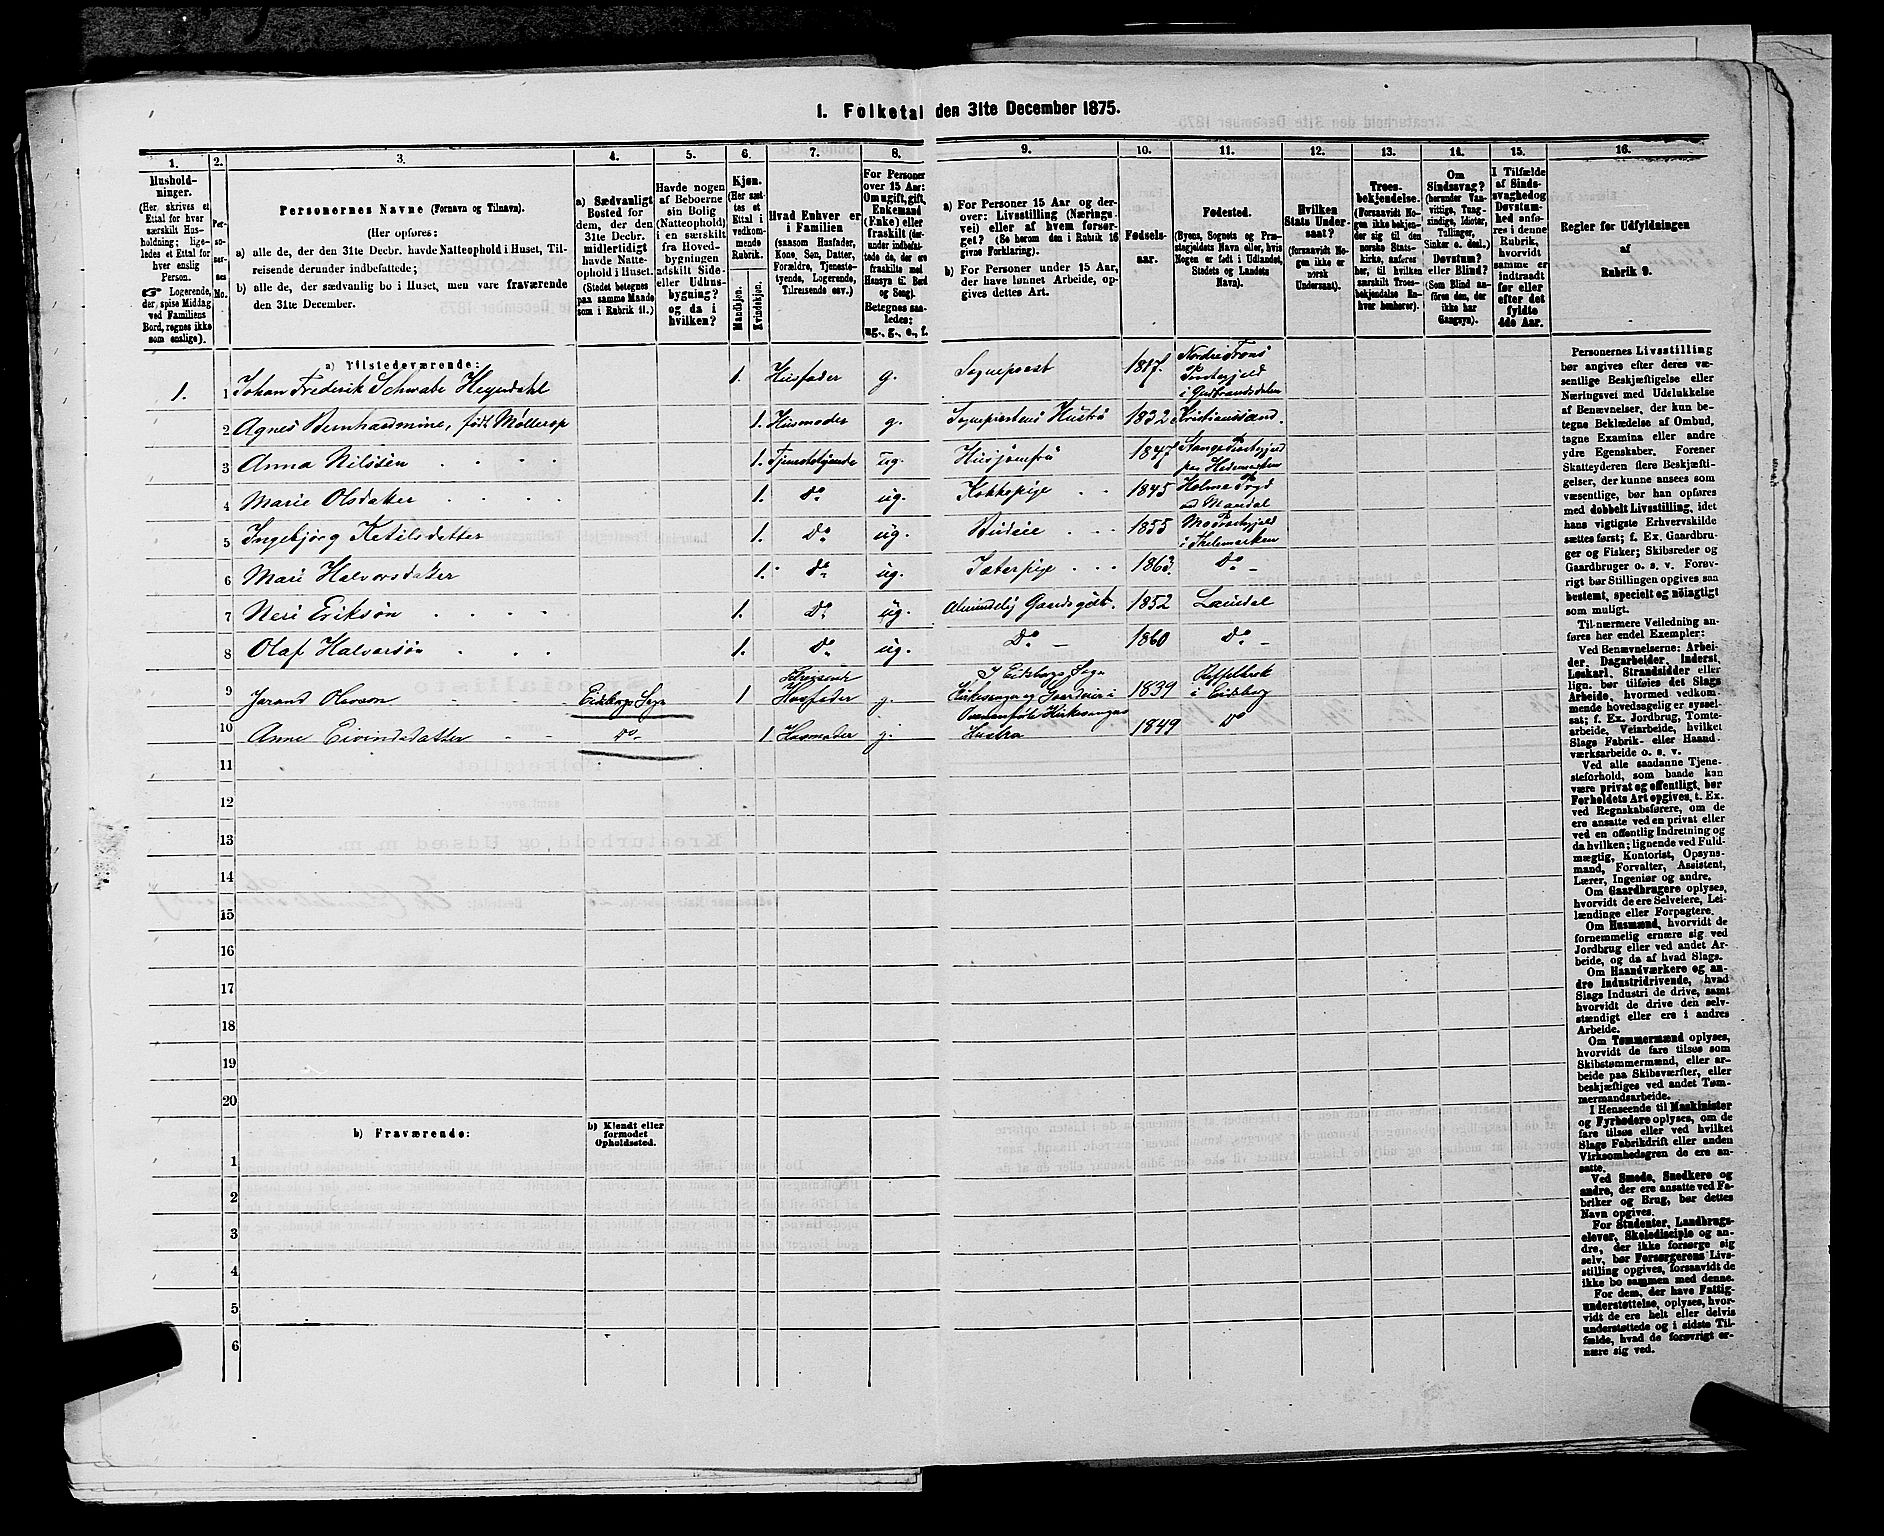 1. Folketal den 31te December 1875.
1. 2. 3. 4. 5. 6. 7. 8. 9. 10. 11. 12. 13. 14. 15. 16.
Husholdninger.
(Her skrives et
Ettal for hver
særskilt Husholdning; ligeledes et Ettal for
hver enslig
Person.
Logerende,
der spise Middag
ved Familiens
Bord, regnes ikke
som enslige).
Personernes No.
Personernes Navne (Fornavn og Tilnavn).
(Her opføres:
a) alle de, der den 31te Decbr. havde Natteophold i Huset, Tilreisende derunder indbefattede;
b) alle de, der sædvanlig bo i Huset, men vare fraværende
den 31te December.
a) Sædvanligt
Bosted for
dem, der den
31te Decbr.
midlertidigt
havde Natteophold i Huset.
(Stedet betegnes
paa samme Maade
som i Rubrik 11.)
Havde nogen
af Beboerne
sin Bolig
(Natteophold)
i en særskilt
fra Hovedbygningen
adskilt Side-
eller Udhusbygning?
og da i
hvilken?
Kjøn.
(Her sættes et
Ettal i
vedkommende
Rubrik.
Mandkjøn.
Kvindekjøn.
Hvad Enhver er
i Familien
(saasom Husfader,
Kone, Søn, Datter,
Forældre, Tjenestetyende, Logerende,
Tilreisende osv.)
For Personer
over 15 Aar:
Om ugift, gift,
Enkemand
(Enke) eller
fraskilt
Betegnes saaledes:
ug., g., e., f.
a) For Personer 15 Aar og derover: Livsstilling (Næringsvei) eller af hvem forsørget? (Se herom den i Rubrik 16
givne Forklaring).
b) For Personer under 15 Aar,
der have lønnet Arbeide, opgives dettes Art.
Fødselsaar.
Fødested.
(Byens, Sognets og Præstegjeldets Navn eller, hvis
Nogen er født i Udlandet,
Stedets og Landets
Navn).
Hvilken
Stats Undersaat?
(forsaavidt Nogen ikke er
norsk
Undersaat).
Troesbekjendelse.
(Forsaavidt Nogen ikke bekjender sig til den
norske Statskirke, anføres
her, til hvilken
særskilt Troesbekjendelse Enhver henhører).
Om
Sindssvag?
(herunder Vanvittige, Tungsindige, Idioter,
Tullinger,
Sinker o. desl.)
Døvstum?
eller Blind?
(Som Blind anføres den, der
ikke har
Gangsyn).
I Tilfælde
af Sindssvaghed og
Døvstumhed anføres i denne
Rubrik,
hvorvidt
samme er
indtraadt
før eller
efter det
fyldte
4de Aar.
Regler for Udfyldningen
af
Rubrik 9.
a) Tilstedeværende:
1. 1 Johan Frederik Schwabe Hegerdahl 1. Husfader g. Sogneprest 1817. Nordre Frons Prestegjeld i Gudbrandsdalen
2 Agnes Bernhardmine, født Møllerop 1. Husmoder g. Sogneprestens Hustru 1832 Kristianssand.
3 Anna Nilssen 1. Tjenestetyende ug. Husjomfru 1847 Stange Prestegjeld paa Hedemarken
4 Marie Olsdatter 1. Do. ug. Kokkepige 1845 Holme Prgd ved Mandal
5 Ingebjørg Ketilsdatter 1. Do. ug. Budeie 1855 Mo Prestegjeld i Thelemarken
6 Mari Halvorsdatter 1. do. ug. 1863. Do.
7 Neri Eriksøn 1. Do. ug. Almindelig Gaardsgut. 1852 Laurdal
8 Olaf Halvorsøn 1. Do. ug. Do. 1860 Do.
9 Jarand Olavson Eidsborgs Sogn 1 Husfader g. I Eidsborgs Sogn Kirkesanger og Gaardeier i 1839 i Eidsborg
10 Anne Eivindsdatter Do. 1 Husmoder g. Kirkesangers Hustru 1849 Do
11
12
13
14
15
16
17
18
19
20
b) Fraværende:
b) Kjendt eller
formodet
Opholdssted.
1
2
3
4
5
6
Personernes Livsstilling
bør angives efter deres væsentlige Beskjæftigelse eller
Næringsvei med Udelukkelse
af Benævnelser, der kun betegne Beklædelse af Ombud,
tagne Examina eller andre
ydre Egenskaber. Forener
Skatteyderen flere Beskjæftigelser, der kunne ansees som
væsentlige, bør han opføres
med dobbelt Livsstilling, idet
hans vigtigste Erhvervskilde
sættes først; f. Ex. Gaardbruger og Fisker; Skibsreder og
Gaardbruger o. s. v. Forøvrigt bør Stillingen opgives saa
bestemt, specielt og nøiagtigt
som muligt.
Til nærmere Veiledning anføres her endel Exempler:
Ved Benævnelserne: Arbeider, Dagarbeider, Inderst,
Løskarl, Strandsidder eller
lign. bør tilføies det Slags
Arbeide, hvormed vedkommende hovedsagelig er sysselsat; f. Ex. Jordbrug, Tomtearbeide, Veiarbeide, hvilket
Slags Fabrik- eller Haandværksarbeide o. s. v.
Ved alle saadanne Tjenesteforhold, som baade kan
være privat og offentligt, bør
Forholdets Art opgives, t. Ex.
ved Regnskabsførere, om de
ere ansatte ved en privat eller
ved en offentlig Indretning og
da hvilken; lignende ved Fuldmægtig, Kontorist, Opsynsmand, Forvalter, Assistent,
Lærer, Ingeniør og andre.
Om Gaardbrugere oplyses,
hvorvidt de ere Selveiere, Leilændinge eller Forpagtere.
Om Husmænd, hvorvidt de
fornemmelig ernære sig ved
Jordbrug eller ved andet Arbeide, og da af hvad Slags.
Om Haandværkere og andre Industridrivende, hvad
Slags Industri de drive, samt
hvorvidt de drive den selvstændigt eller ere i andres
Arbeide.
Om Tømmermænd oplyses,
hvorvidt de fare tilsøs som
Skibstømmermænd, eller arbeide paa Skibsværfter, eller
beskjæftiges ved andet Tømmermandsarbeide.
I Henseende til Maskinister
og Fyrbødere oplyses, om de
fare tilsøs eller ved hvilket
Slags Fabrikdrift eller anden
Virksomhedsgren de ere ansatte.
Ved Smede, Snedkere og
andre, der ere ansatte ved Fabriker og Brug, bør dettes
Navn opgives.
For Studenter, Landbrugselever, Skoledisciple og andre, der ikke forsørge sig
selv, bør Forsørgerens Livsstilling opgives, forsaavidt de
ikke bo sammen med denne.
For dem, der have Fattigunderstøttelse, oplyses, hvorvidt de ere helt eller delvis
understøttede og i sidste Tilfælde, hvad de forøvrigt ernære sig ved.